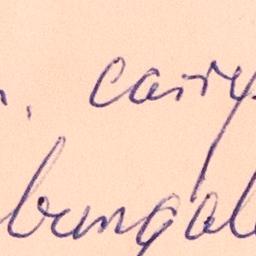 carry
bungal